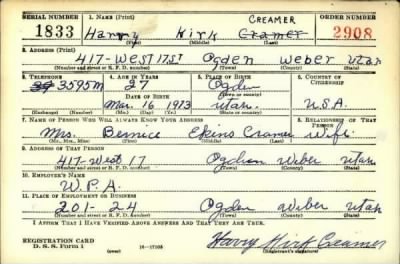 SERIAL NUMBER 1. NAME (Print) CREAMER ORDER NUMBER
1833 Harry Kirk Cramer 2908
(First) (Middle) (Last)
2. ADDRESS (Print)
417-West 17 St Ogden Weber Utah
(Number and street or R. F. D. number) (Town) (County) (State)
3. TELEPHONE 4. AGE IN YEARS 5. PLACE OF BIRTH 6. COUNTRY OF CITIZENSHIP
3595M 27 Ogden
DATE OF BIRTH (Town or county)
Mar. 16 1913 Utah. U.S.A.
(Exchange) (Number) (Mo.) (Day) (Yr.) (State or country)
7. NAME OF PERSON WHO WILL ALWAYS KNOW YOUR ADDRESS 8. RELATIONSHIP OF THAT PERSON
Mrs. Bernice Ekins Cramer Wife
(Mr., Mrs., Miss) (First) (Middle) (Last)
9. ADDRESS OF THAT PERSON
417-West 17 Ogden Weber Utah
(Number and street or R. F. D. number) (Town) (County) (State)
10. EMPLOYER'S NAME
W.P.A.
11. PLACE OF EMPLOYMENT OR BUSINESS
201-24 Ogden Weber Utah
(Number and street or R. F. D. number) (Town) (County) (State)
I AFFIRM THAT I HAVE VERIFIED ABOVE ANSWERS AND THAT THEY ARE TRUE.
REGISTRATION CARD
D. S. S. Form 1 (over) 16-17105 Harry Kirk Creamer
(Registrant's signature)